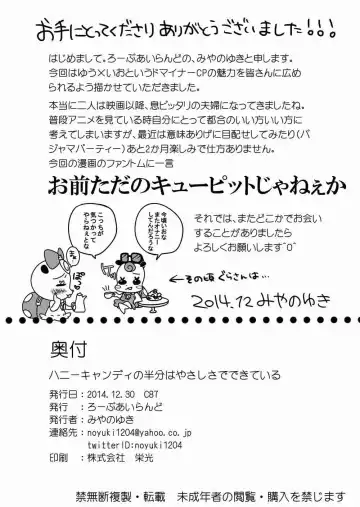 お手にとってくださりありがとうございました!!!
はじめまして。ろーぷあいらんどの、みやのゆきと申します。
今回はゆう×いおというドマイナーCPの魅力を皆さんに広め
られるよう描かせていただきました。
本当に二人は映画以降、息ピッタリの夫婦になってきましたね。
普段アニメを見ている時自分にとって都合のいい方いい方に
考えてしまいますが、最近は意味ありげに目配せしてみたり(パ
ジャマパーティー)あと2か月楽しみで仕方ありません。
今回の漫画のファントムに一言
お前ただのキューピットじゃねぇか
今頃いおな
またオナニー
してんだろうな
こっちが
気ぃつかって
やらねぇとな
ぽっ
それでは、またどこかでお会い
することがありましたら
よろしくお願いします^0^
←その頃ぐらさんは…
2014.12 みやのゆき
奥付
ハニーキャンディの半分はやさしさでできている
発行日:2014.12.30 C87
発行:ろーぷあいらんど
発行者:みやのゆき
連絡先:noyuki1204@yahoo.co.jp
twitterID:noyuki1204
印刷:株式会社 栄光
禁無断複製・転載 未成年者の閲覧・購入を禁じます